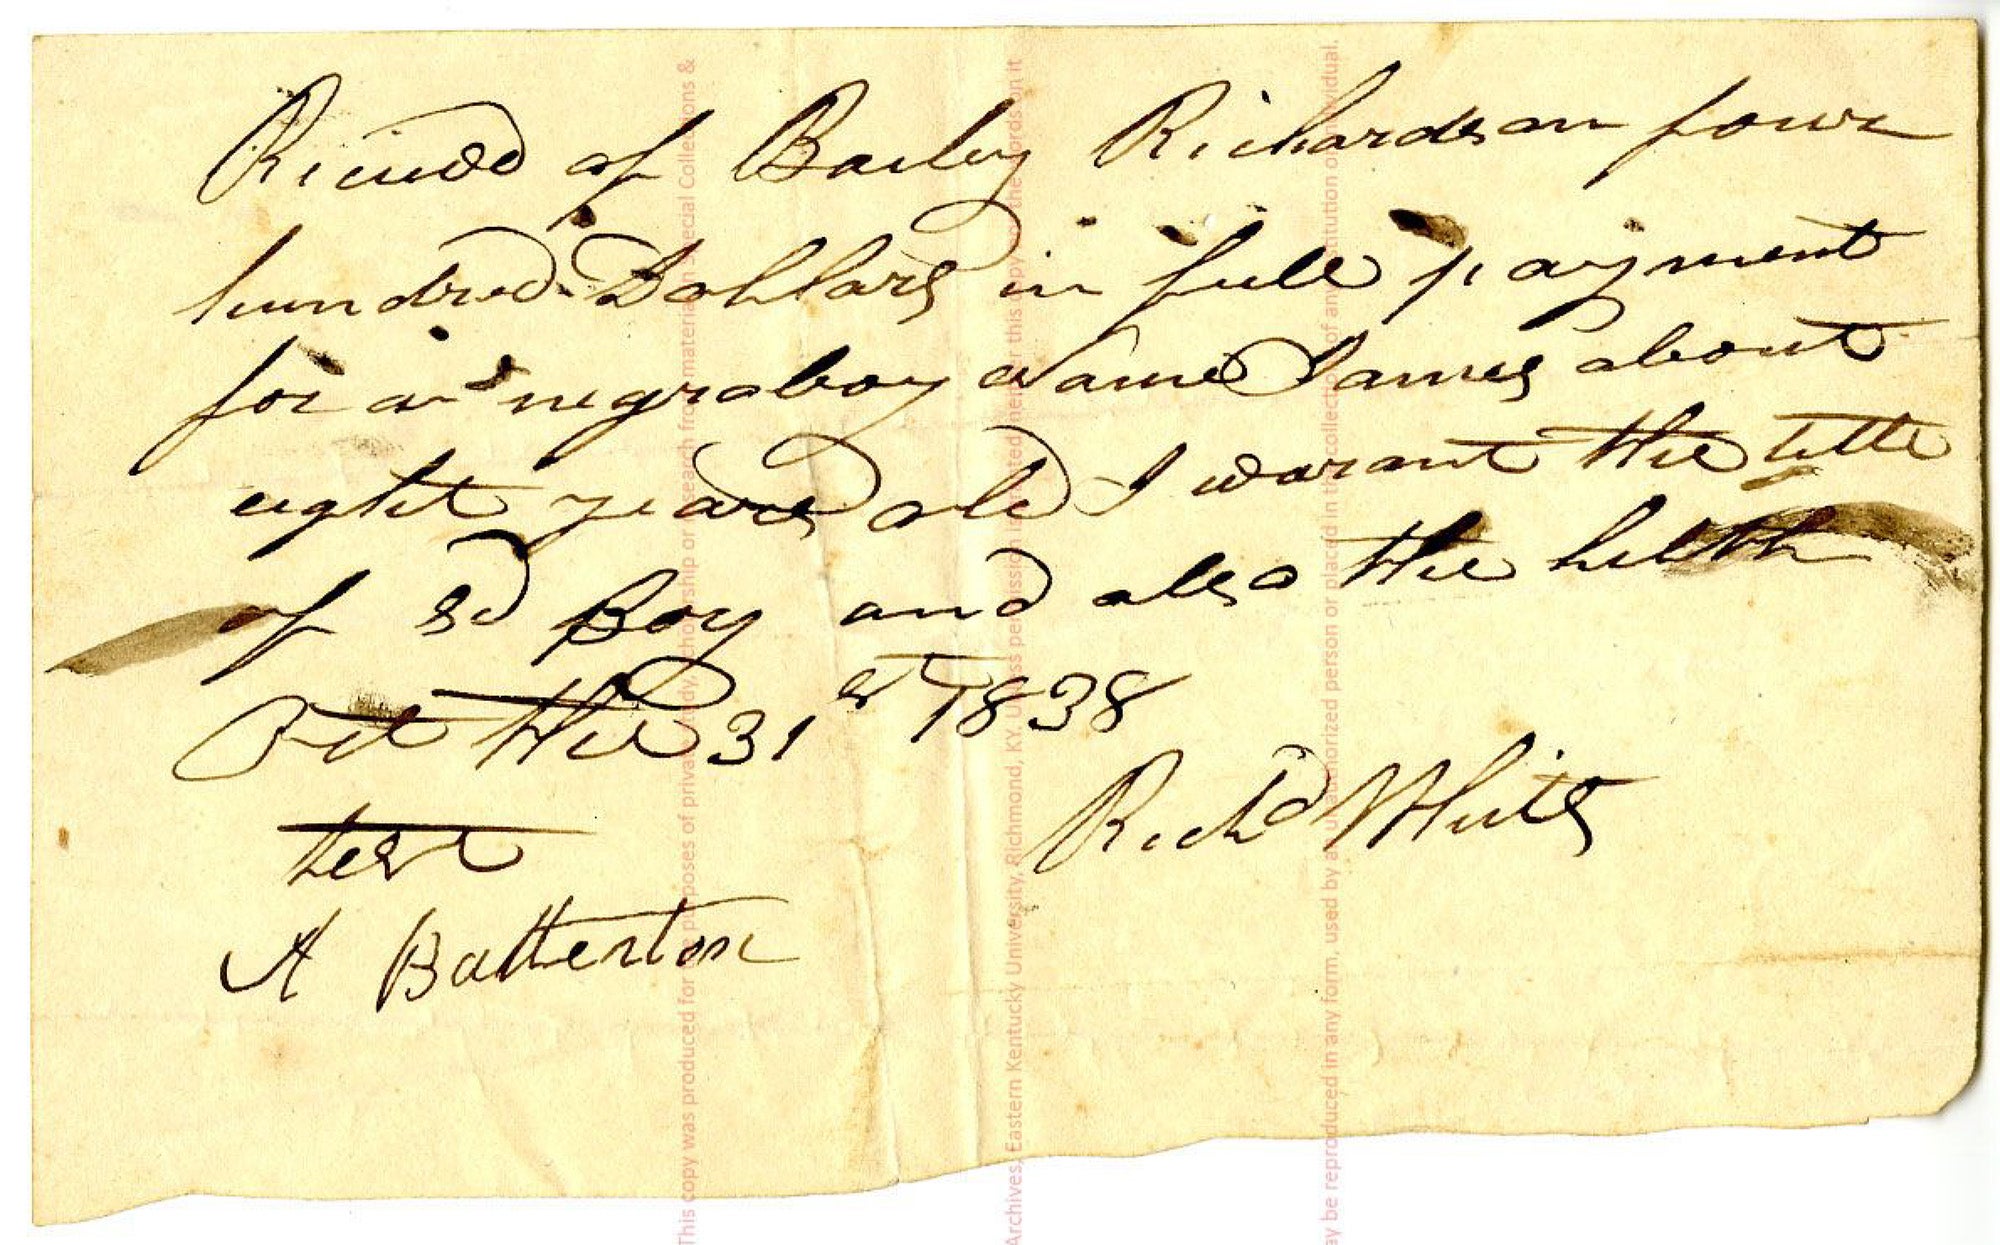 Recived of Barley Richardson four
hundred Dollars in full payment
for a negro boy Name James about
eight years old I warant the title
of sd Boy and also the helth
Oct the 31st 1838
Richd White
test
A Batterton
This copy was produced for the purposes of private study, scholarship or research from material in Special Collections &
Archives, Eastern Kentucky University, Richmond, KY. Unless permission is granted neither this copy nor the words on it
may be reproduced in any form, used by an unauthorized person or placed in the collection of any institution or individual.